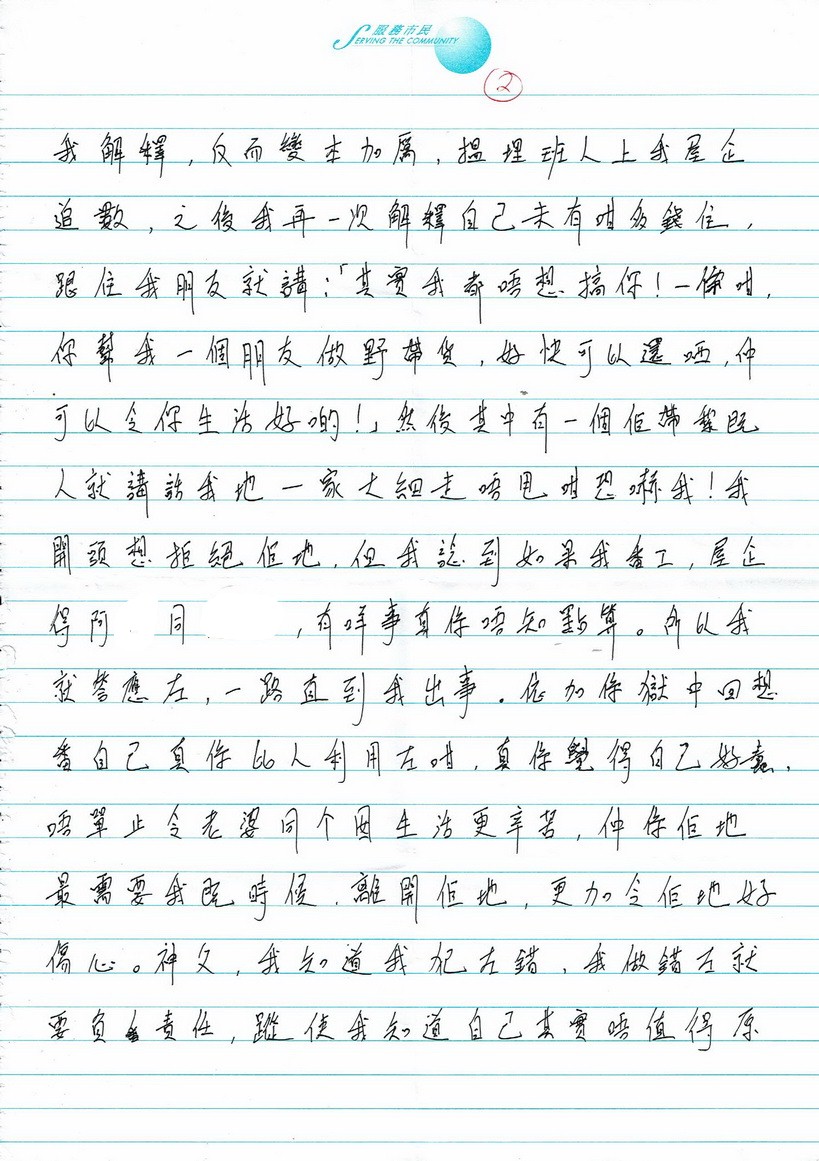 服務市民
SERVING THE COMMUNITY
2
我解釋,反而變本加厲,搵埋班人上我屋企
追數,之後我再一次解釋自己未有咁多錢住,
跟住我朋友就講:「其實我都唔想搞你!一係咁,
你幫我一個朋友做野帶貨,好快可以還哂,仲
可以令你生活好啲!」然後其中有一個佢帶黎既
人就講話我地一家大細走唔甩咁恐嚇我!我
開頭想拒絕佢地,但我諗到如果我番工,屋企
得阿 同 ,有咩事真係唔知點算。所以我
就答應左,一路直到我出事。依加係獄中回想
番自己真係比人利用左咁,真係覺得自己好蠢,
唔單止令老婆同个囡生活更辛苦,仲係佢地
最需要我既時候,離開佢地,更加令佢地好
傷心。神父,我知道我犯左錯,我做錯左就
要負責任,蹤使我知道自己其實唔值得原